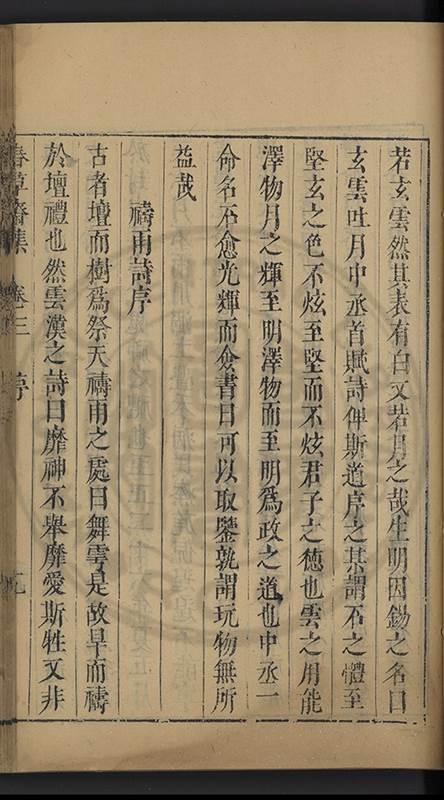 若玄雲然其表有白文若月之哉生明因鋤之名曰
玄雲吐月中丞首賦詩俾斯道序之某謂石之體至
堅玄之色不炫至堅而不炫君子之德也雲之用能
澤物月之輝至明澤物而至明為政之道也中丞一
命名石愈光輝而僉書曰可以取鑒孰謂玩物無所
益哉
禱雨詩序
古者壇而樹為祭天禱雨之處曰舞雩是故旱而禱
於壇禮也然雲漢之詩曰靡神不舉靡愛斯牲又非
春草齋集 卷三 序